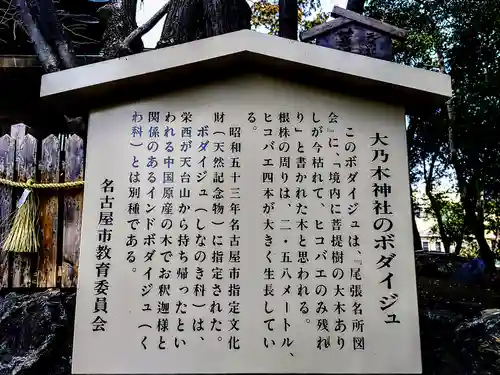 大乃木神社のボダイジュ
このボダイジュは『尾張名所図
会』に「境内に菩提樹の大木あり
しが今枯れて、ヒコバエのみ残れ
り」と書かれた木と思われる。
根株の周りは、二・五八メートル、
ヒコバエ四本が大きく生長してい
る。
昭和五十三年名古屋市指定文化
財（天然記念物）に指定された。
ボダイジュ（しなのき科）は、
栄西が天台山から持ち帰ったとい
われる中国原産の木でお釈迦様と
関係のあるインドボダイジュ（く
わ科）とは別種である。
名古屋市教育委員会